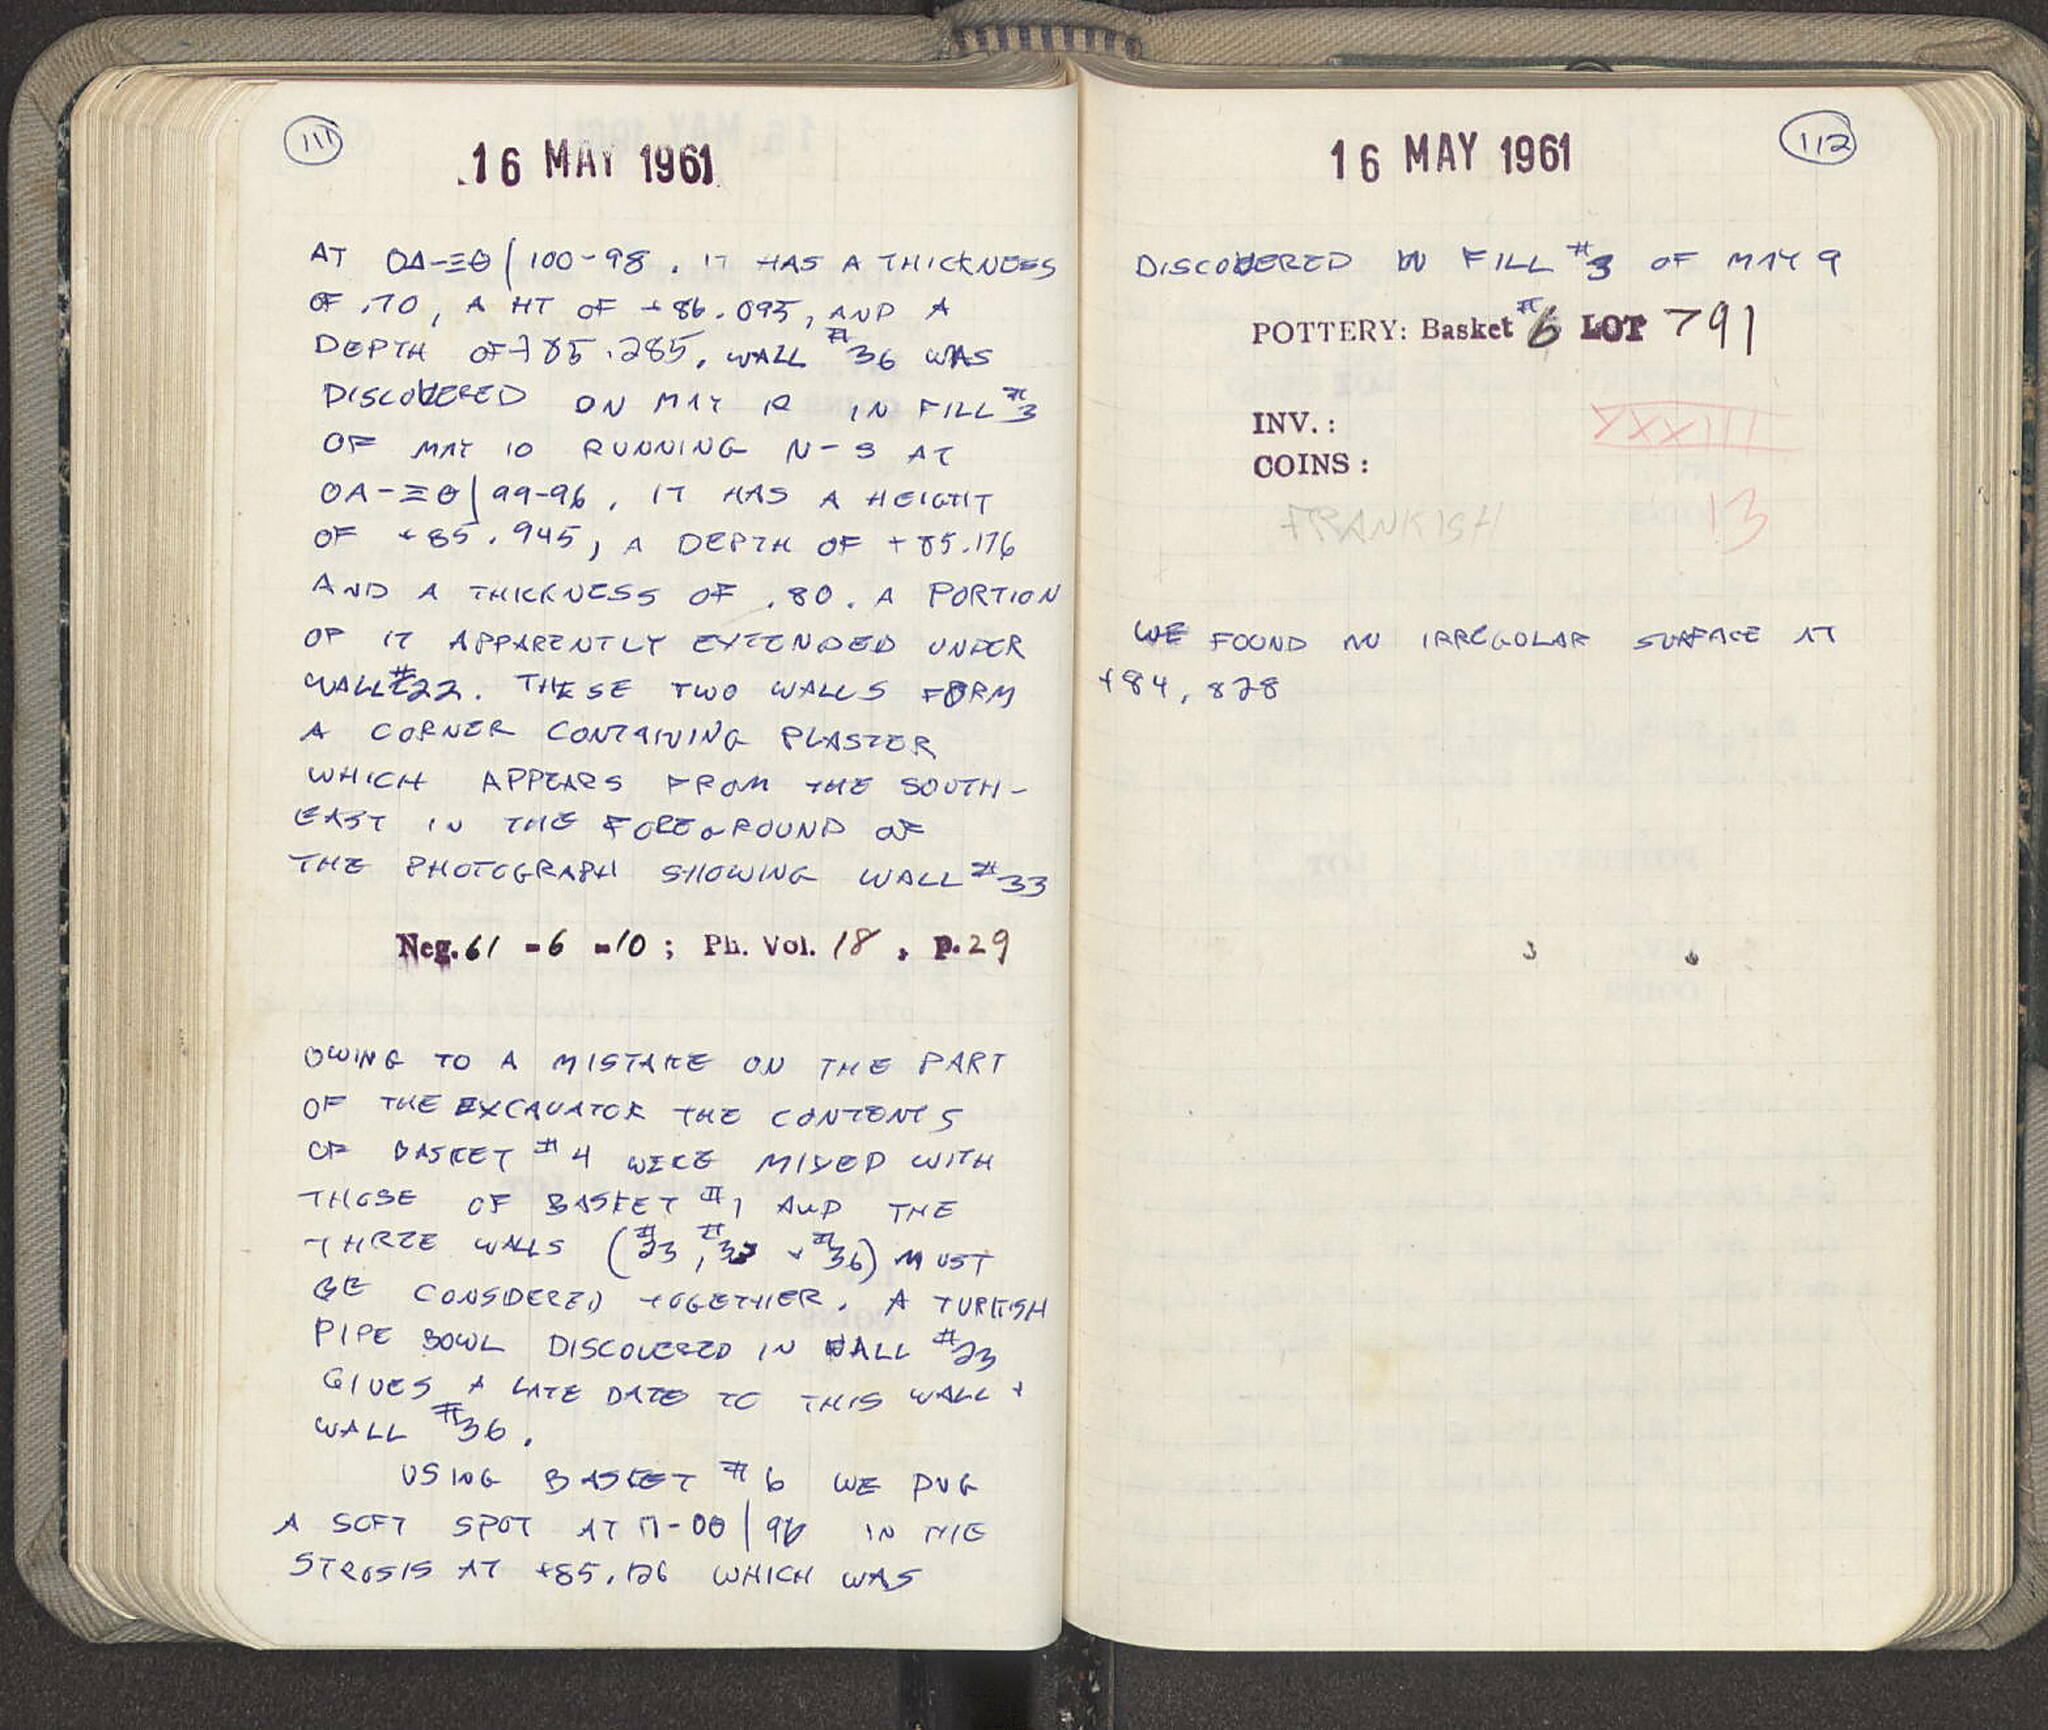 111
16 MAY 1961
AT ΟΔ-ΞΘ | 100-98. IT HAS A THICKNESS
OF .70, A HT OF +86.095, AND A
DEPTH OF +85.285. WALL #36 WAS
DISCOVERED ON MAY 12 IN FILL #3
OF MAY 10 RUNNING N-S AT
ΟΑ-ΞΘ | 99-96. IT HAS A HEIGHT
OF +85.945, A DEPTH OF +85.176
AND A THICKNESS OF .80. A PORTION
OF IT APPARENTLY EXTENDED UNDER
WALL #22. THESE TWO WALLS FORM
A CORNER CONTAINING PLASTER
WHICH APPEARS FROM THE SOUTH-
EAST IN THE FOREGROUND OF
THE PHOTOGRAPH SHOWING WALL #33
Neg. 61 - 6 - 10 ; Ph. Vol. 18 , p. 29
OWING TO A MISTAKE ON THE PART
OF THE EXCAVATOR THE CONTENTS
OF BASKET #4 WERE MIXED WITH
THOSE OF BASKET #1 AND THE
THREE WALLS (#23, #33 + #36) MUST
BE CONSIDERED TOGETHER. A TURKISH
PIPE BOWL DISCOVERED IN WALL #23
GIVES A LATE DATE TO THIS WALL +
WALL #36.
USING BASKET #6 WE DUG
A SOFT SPOT AT Π-ΟΘ | 96 IN THE
STROSIS AT +85.126 WHICH WAS
112
16 MAY 1961
DISCOVERED IN FILL #3 OF MAY 9
POTTERY: Basket #6 LOT 791
INV. :
XXXIII
COINS :
FRANKISH
13
WE FOUND AN IRREGULAR SURFACE AT
+84.828